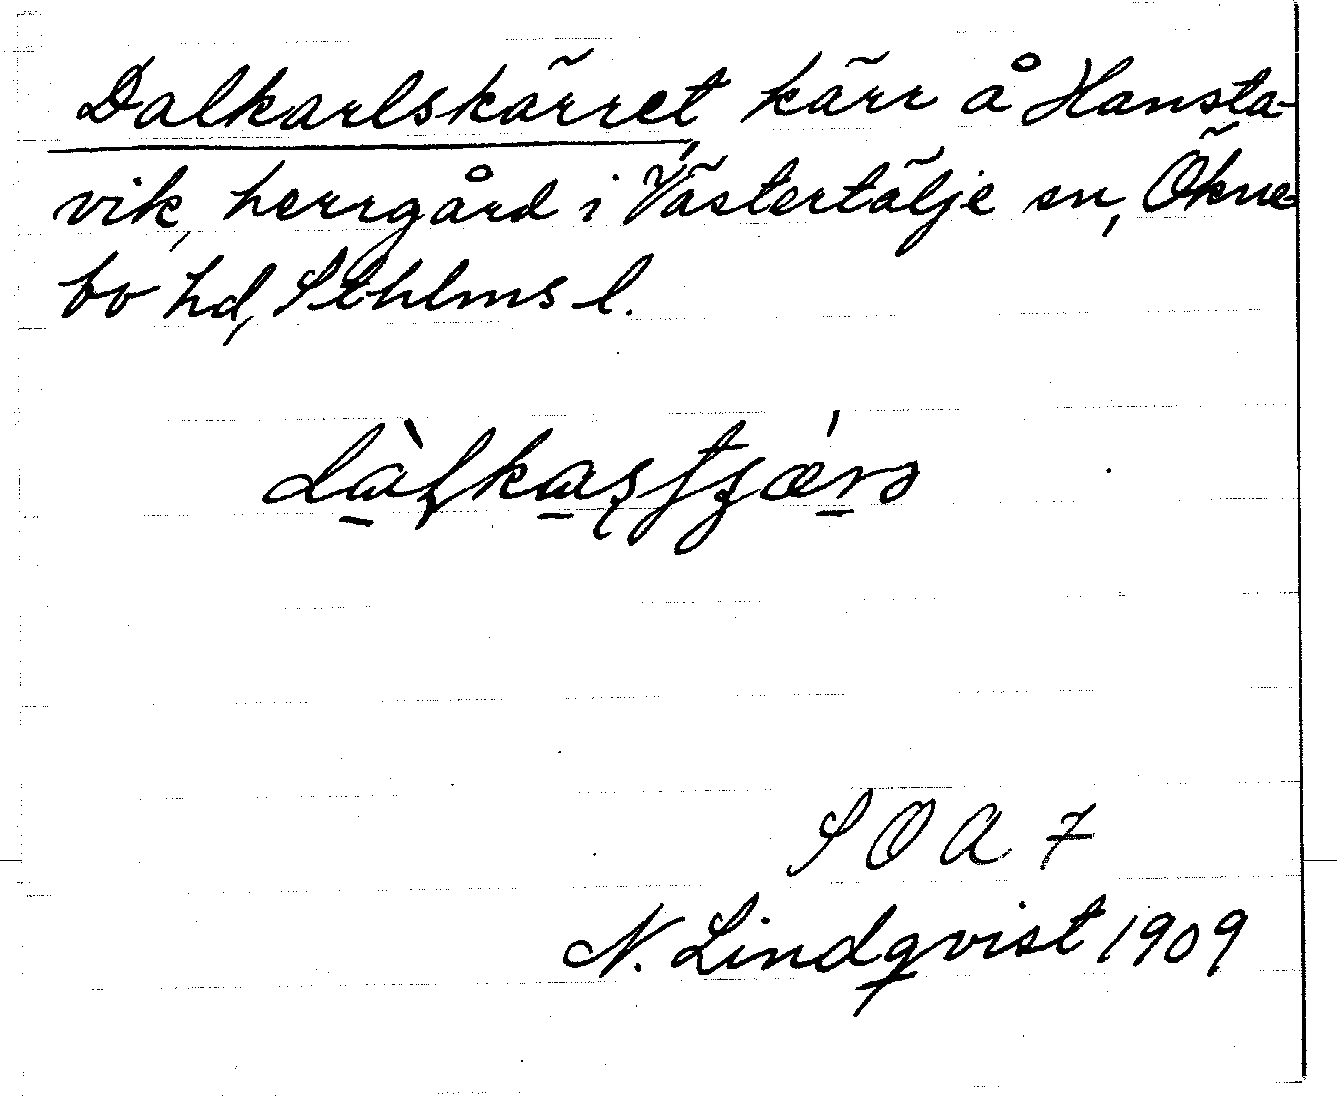 Dalkarlskärret, kärr å Hansta-
vik, herrgård i Västertälje sn, Ökne-
bo hd, Sthlms l.
S O A 7
N. Lindqvist 1909